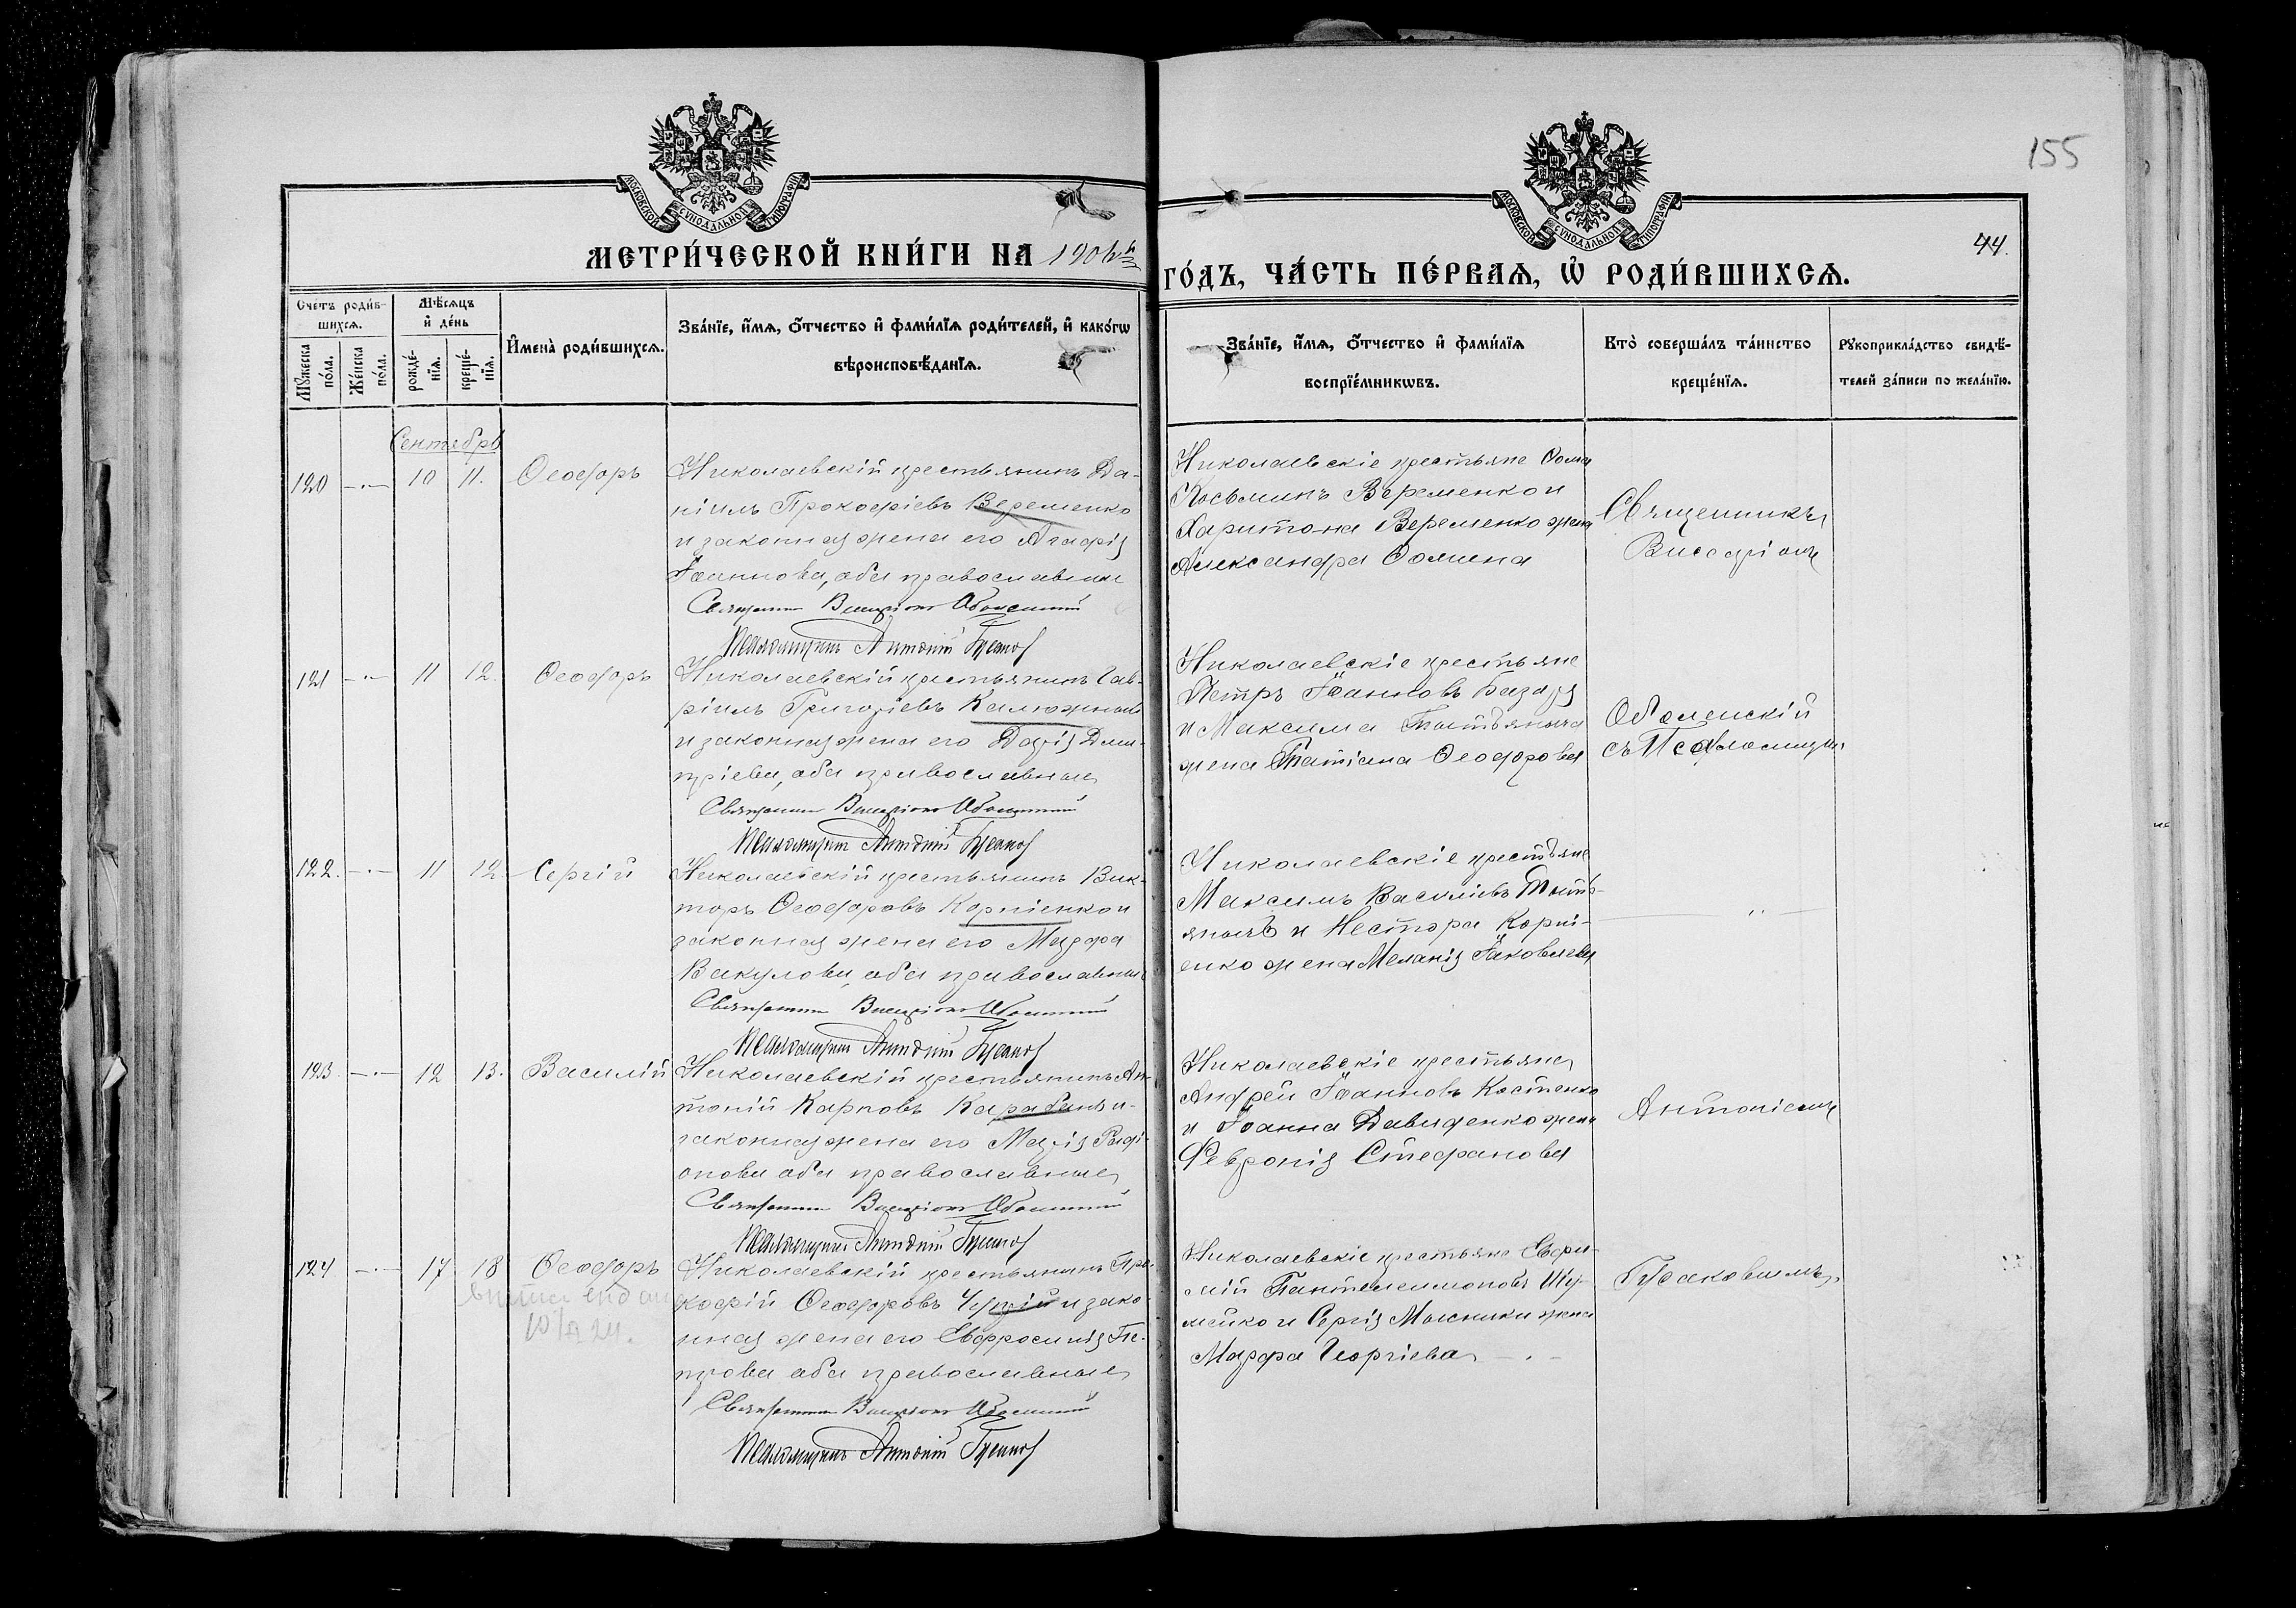 155
МОСКОВСКОЙ СѴНОДАЛЬНОЙ ТИПОГРАФІИ
МОСКОВСКОЙ СѴНОДАЛЬНОЙ ТИПОГРАФІИ
44.
МЕТРИ́ЧЕСКОЙ КНИ́ГИ НА 1906й
ГО́ДЪ, ЧА́СТЬ ПЕ́РВАѦ, Ѡ҆ РОДИ́ВШИХСѦ.
Сче́тъ роди́в-
шихсѧ.
Мѣ́сѧцъ
и҆ де́нь
Мꙋ́жеска по́ла.
Же́нска по́ла.
рожде́-нїѧ.
креще́-нїѧ.
И҆мена̀ роди́вшихсѧ.
Зва́нїе, и҆́мѧ, ѻ҆́тчество и҆ фами́лїѧ роди́телей, и҆ како́гѡ
вѣроисповѣ́данїѧ.
Зва́нїе, и҆́мѧ, ѻ҆́тчество и҆ фами́лїѧ
воспрїе́мникѡвъ.
Кто̀ соверша́лъ та́инство
креще́нїѧ.
Рꙋкоприкла́дство свидѣ́-
телей за́писи по жела́нїю.
Сентябрь
120 —·— 10 11. Ѳеодоръ
Николаевскій крестьянинъ Да-
ніилъ Прокофіевъ Веременко
и законная жена его Агафія
Іоаннова, оба православные
Священникъ Виссаріонъ Оболенскій
Псаломщикъ Антоній
Николаевскіе крестьяне Ѳома
Косьминъ Веременко и
Харитона Веременко жена
Александра Ѳомина
Священникъ
Виссаріонъ
121 —·— 11 12. Ѳеодоръ
Николаевскій крестьянинъ Гав-
ріилъ Григоріевъ Калюжный
и законная жена его Дарія Дми-
тріева, оба православные
Священникъ Виссаріонъ Оболенскій
Псаломщикъ Антоній
Николаевскіе крестьяне
Петръ Іоанновъ
и Максима
жена Татіана Ѳеодорова
Оболенскій
съ Псаломщик.
122. —·— 11 12. Сергій
Николаевскій крестьянинъ Вик-
торъ Ѳеодоровъ Корніенко и
законная жена его Марфа
Вакулова, оба православные
Священникъ Виссаріонъ Оболенскій
Псаломщикъ Антоній
Николаевскіе крестьяне
Максимъ Василіевъ
и Нестора Корні-
енко жена Меланія Іаковлева
— " —
123. —·— 12 13. Василій
Николаевскій крестьянинъ Ан-
тоній Карповъ Карабанъ и
законная жена его Марія
онова оба православные
Священникъ Виссаріонъ Оболенскій
Псаломщикъ Антоній
Николаевскіе крестьяне
Андрей Іоанновъ Костенко
и Іоанна Давиденко жена
Февронія Стефанова
Антоніемъ
124. —·— 17 18 Ѳеодоръ
Николаевскій крестьянинъ Про-
кофій Ѳеодоровъ и зако-
нная жена его Евфросинія Пе-
трова оба православные
Священникъ Виссаріонъ Оболенскій
Псаломщикъ Антоній
Николаевскіе крестьяне Евфи-
мій Пантелеимоновъ Шу-
мейко и Сергія жена
Марфа Георгіева —·—